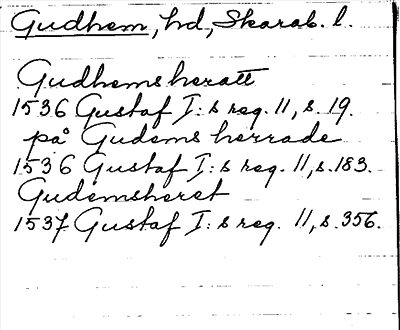 Gudhem, hd, Skarab. l.
Gudhemsheratt
1536 Gustaf I:s reg. 11, s. 19.
på Gudems herrade
1536 Gustaf I:s reg. 11, s. 183.
Gudemsheret
1537 Gustaf I:s reg. 11, s. 356.